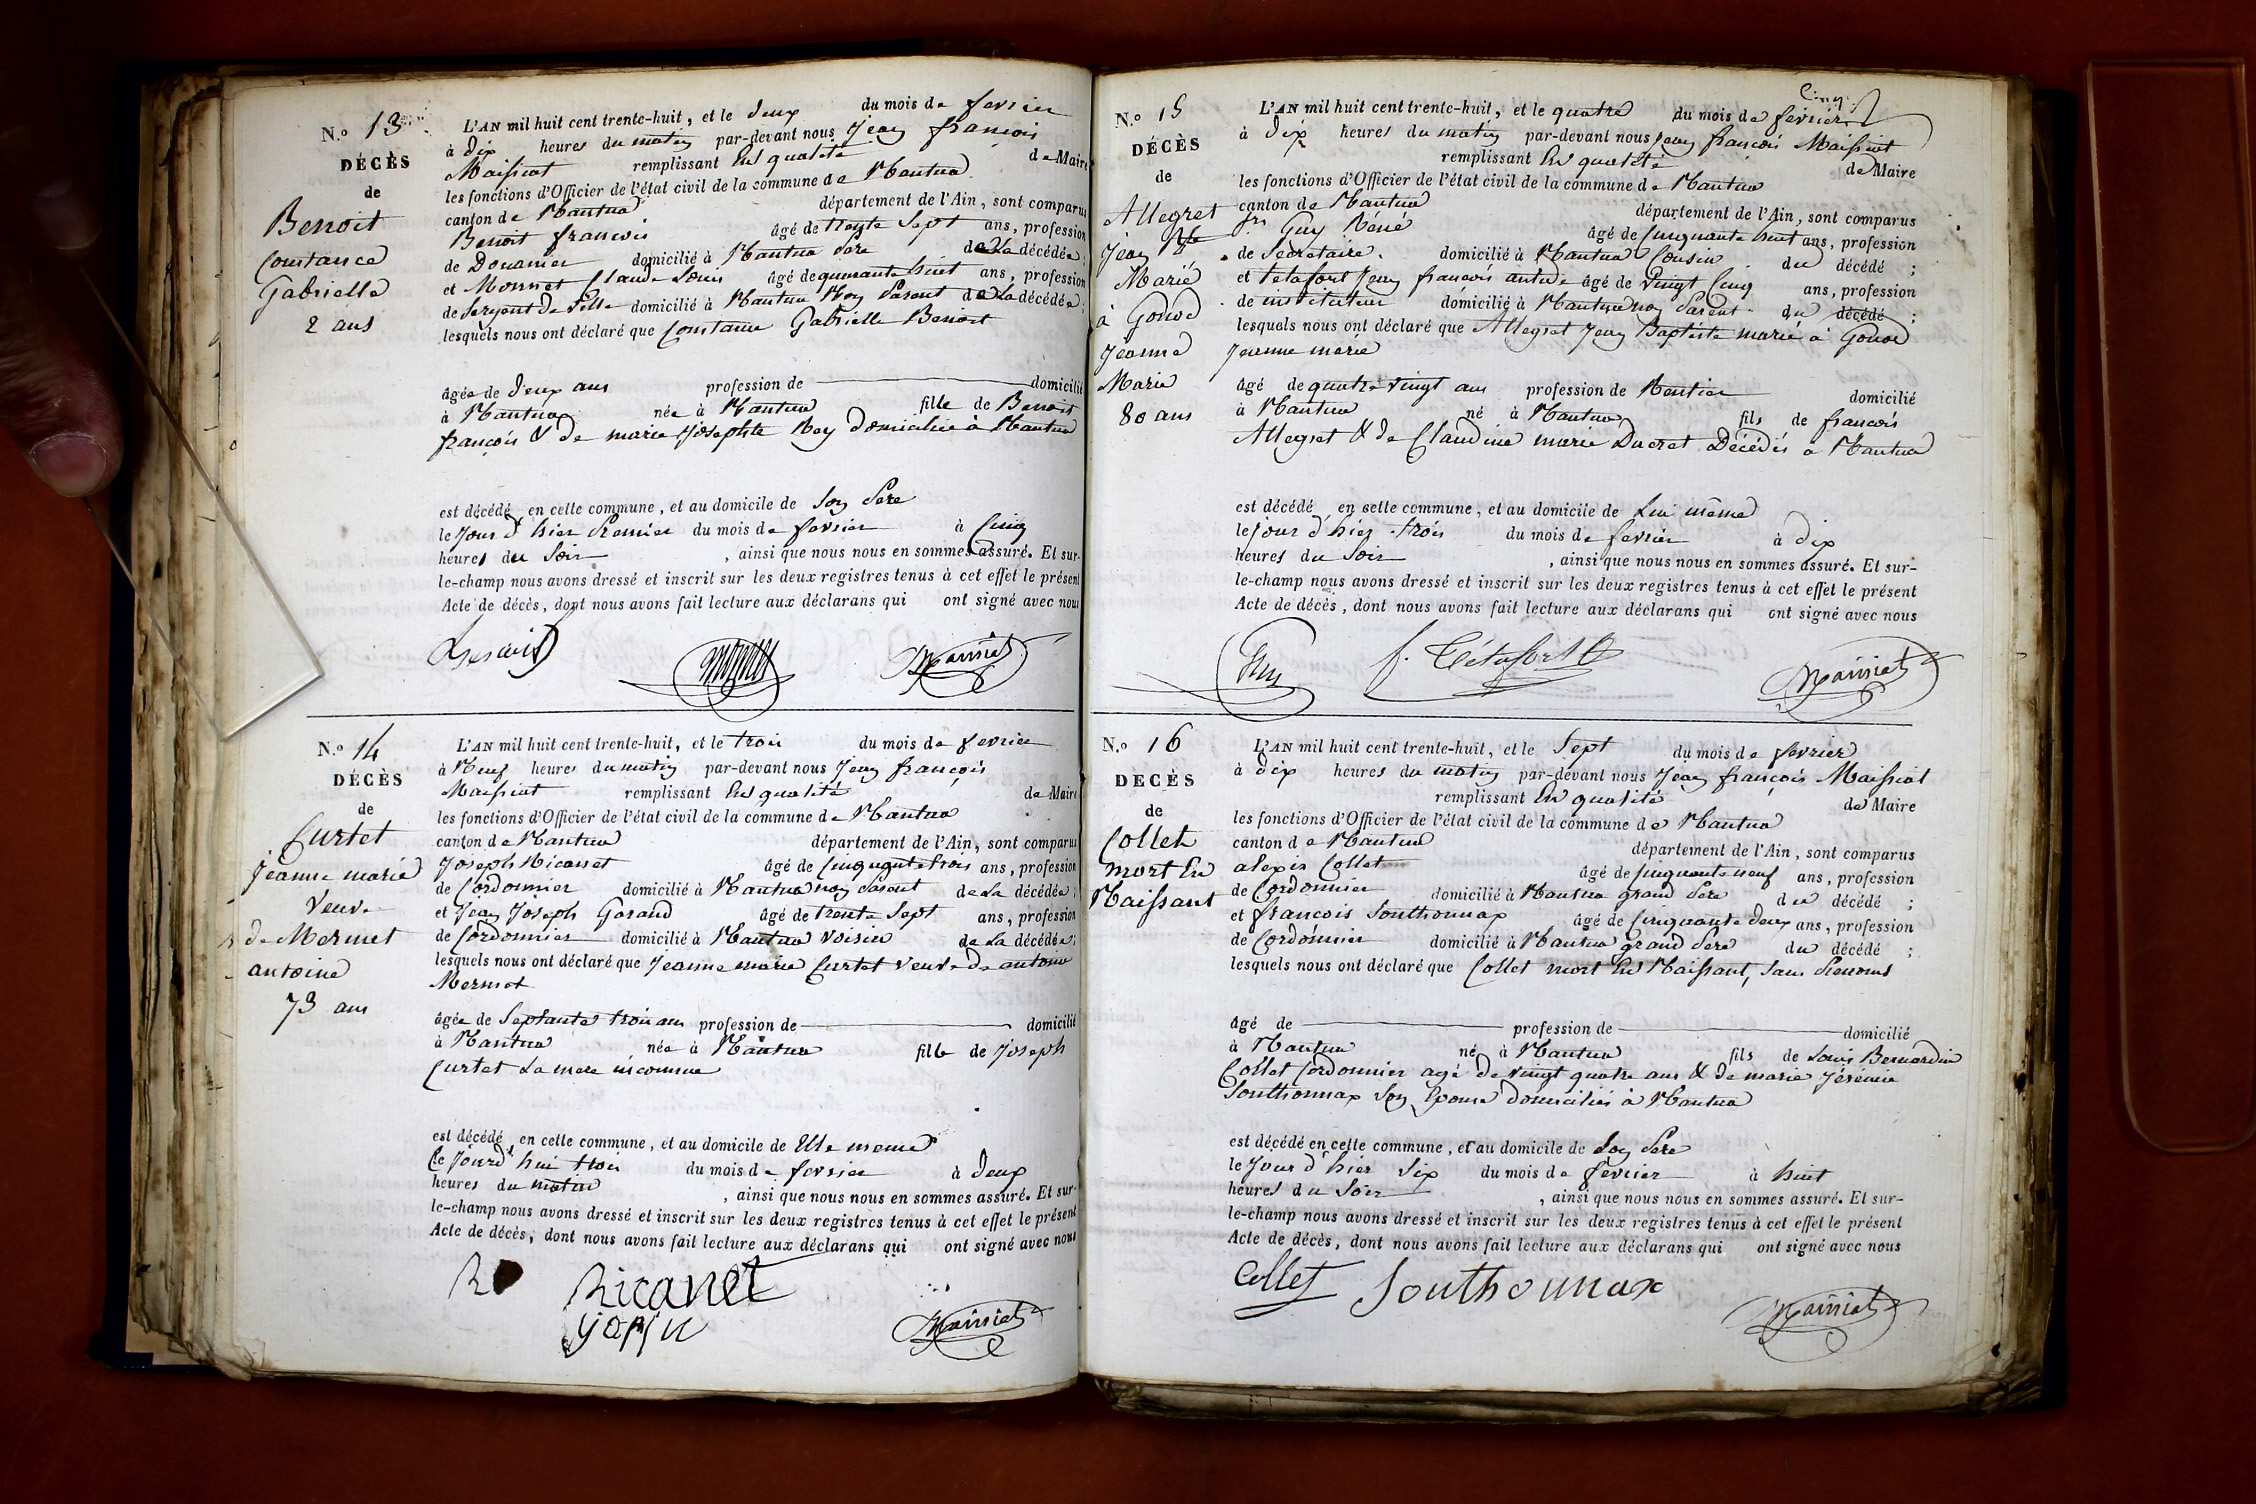 N.º 13
DÉCÈS
de
Benoit
Constance
Gabrielle
2 ans
L'AN mil huit cent trente-huit, et le deux du mois de fevrier
à dix heures du matin par-devant nous Jean françois
Maissiat remplissant En qualité de Maire
les fonctions d'Officier de l'état civil de la commune de Nantua
canton de Nantua département de l'Ain, sont comparus
Benoit francois âgé de trente Sept ans, profession
de Douanier domicilié à Nantua Pere de La décédée ;
et Monnet Claude Louis âgé de quarante huit ans, profession
de Sergent de Ville domicilié à Nantua Non Parent de La décédée ;
lesquels nous ont déclaré que Constance Gabrielle Benoit
âgée de deux ans profession de domicilié
à Nantua née à Nantua fille de Benoit
françois & de marie Josephte Rey domiciliée à Nantua
est décédé en cette commune, et au domicile de Son Pere
le Jour d'hier Premier du mois de fevrier à Cinq
heures du Soir , ainsi que nous nous en sommes assuré. Et sur-
le-champ nous avons dressé et inscrit sur les deux registres tenus à cet effet le présent
Acte de décès, dont nous avons fait lecture aux déclarans qui ont signé avec nous
Benoit Maissiat
N.º 14
DÉCÈS
de
Curtet
Jeanne marie
Veuve
de Mermet
antoine
73 ans
L'AN mil huit cent trente-huit, et le trois du mois de fevrier
à Neuf heures du matin par-devant nous Jean françois
Maissiat remplissant En qualité de Maire
les fonctions d'Officier de l'état civil de la commune de Nantua
canton de Nantua département de l'Ain, sont comparus
Joseph Ricanet âgé de Cinquante trois ans, profession
de Cordonnier domicilié à Nantua non Parent de La décédée ;
et Jean Joseph Garand âgé de trente Sept ans, profession
de Cordonnier domicilié à Nantua voisin de La décédée ;
lesquels nous ont déclaré que Jeanne marie Curtet veuve de antoine
Mermet
âgée de Septante trois ans profession de domicilié
à Nantua née à Nantua fille de Joseph
Curtet La mere inconnue
est décédé en cette commune, et au domicile de Elle meme
le Jourd'hui trois du mois de fevrier à deux
heures du matin , ainsi que nous nous en sommes assuré. Et sur-
le-champ nous avons dressé et inscrit sur les deux registres tenus à cet effet le présent
Acte de décès, dont nous avons fait lecture aux déclarans qui ont signé avec nous
Ricanet
Maissiat
N.º 15
DÉCÈS
de
Allegret
Jean Bte
Marié
à Gonod
Jeanne
Marie
80 ans
Cinq
L'AN mil huit cent trente-huit, et le quatre du mois de février
à dix heures du matin par-devant nous Jean françois Maissiat
remplissant En qualité de Maire
les fonctions d'Officier de l'état civil de la commune de Nantua
canton de Nantua département de l'Ain, sont comparus
Guy Réné âgé de Cinquante huit ans, profession
de Secretaire domicilié à Nantua Cousin du décédé ;
et tetafort Jean françois âgé de vingt Cinq ans, profession
de instituteur domicilié à Nantua non Parent du décédé ;
lesquels nous ont déclaré que Allegret Jean Baptiste marié à Gonod
Jeanne marie
âgé de quatre vingt ans profession de Rentier domicilié
à Nantua né à Nantua fils de francois
Allegret & de Claudine marie Ducret Décédés à Nantua
est décédé en cette commune, et au domicile de Lui même
le Jour d'hier trois du mois de fevrier à dix
heures du Soir , ainsi que nous nous en sommes assuré. Et sur-
le-champ nous avons dressé et inscrit sur les deux registres tenus à cet effet le présent
Acte de décès, dont nous avons fait lecture aux déclarans qui ont signé avec nous
Guy f. Tétafort Maissiat
N.º 16
DÉCÈS
de
Collet
mort En
Naissant
L'AN mil huit cent trente-huit, et le Sept du mois de fevrier
à dix heures du matin par-devant nous Jean françois Maissiat
remplissant En qualité de Maire
les fonctions d'Officier de l'état civil de la commune de Nantua
canton de Nantua département de l'Ain, sont comparus
alexis Collet âgé de Cinquante neuf ans, profession
de Cordonnier domicilié à Nantua grand Pere du décédé ;
et francois Southonnax âgé de Cinquante deux ans, profession
de Cordonnier domicilié à Nantua grand Pere du décédé ;
lesquels nous ont déclaré que Collet mort En Naissant, Sans Prenoms
âgé de profession de domicilié
à Nantua né à Nantua fils de Louis Bernardin
Collet Cordonnier agé de vingt quatre ans & de marie Jérémie
Southonnax Son Epouse domiciliés à Nantua
est décédé en cette commune, et au domicile de Son Pere
le Jour d'hier Six du mois de février à huit
heures du Soir , ainsi que nous nous en sommes assuré. Et sur-
le-champ nous avons dressé et inscrit sur les deux registres tenus à cet effet le présent
Acte de décès, dont nous avons fait lecture aux déclarans qui ont signé avec nous
Collet Southonnax
Maissiat